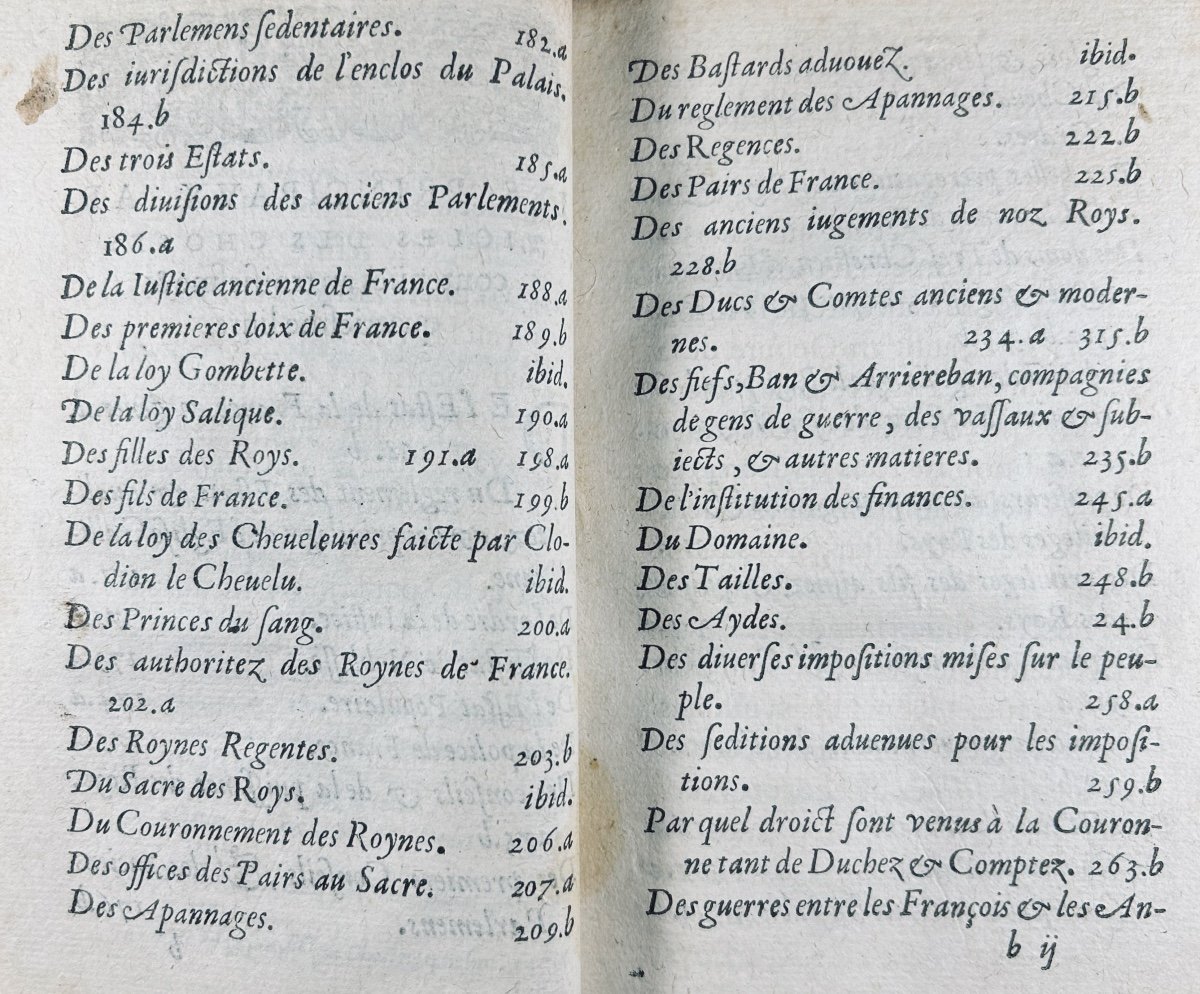 Des Parlemens ſedentaires. 182.a
Des iuriſdictions de l'enclos du Palais.
184.b
Des trois Eſtats. 185.a
Des diuiſions des anciens Parlements.
186.a
De la Iuſtice ancienne de France. 188.a
Des premieres loix de France. 189.b
De la loy Gombette. ibid.
De la loy Salique. 190.a
Des filles des Roys. 191.a 198.a
Des fils de France. 199.b
De la loy des Cheueleures faicte par Clo-
dion le Cheuelu. ibid.
Des Princes du ſang. 200.a
Des authoritez des Roynes de France.
202.a
Des Roynes Regentes. 203.b
Du Sacre des Roys. ibid.
Du Couronnement des Roynes. 206.a
Des offices des Pairs au Sacre. 207.a
Des Apannages. 209.b
Des Baſtards aduouez. ibid.
Du reglement des Apannages. 215.b
Des Regences. 222.b
Des Pairs de France. 225.b
Des anciens iugements de noz Roys.
228.b
Des Ducs & Comtes anciens & moder-
nes. 234.a 315.b
Des fiefs, Ban & Arriereban, compagnies
de gens de guerre, des vaſſaux & ſub-
iects, & autres matieres. 235.b
De l'inſtitution des finances. 245.a
Du Domaine. ibid.
Des Tailles. 248.b
Des Aydes. 24.b
Des diuerſes impoſitions miſes ſur le peu-
ple. 258.a
Des ſeditions aduenues pour les impoſi-
tions. 259.b
Par quel droict ſont venus à la Couron-
ne tant de Duchez & Comptez. 263.b
Des guerres entre les François & les An-
b ij